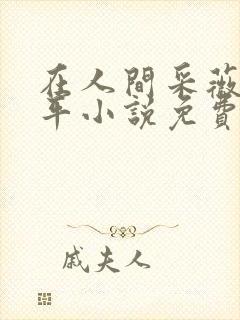 在人間采薇
年小說免費
戚夫人